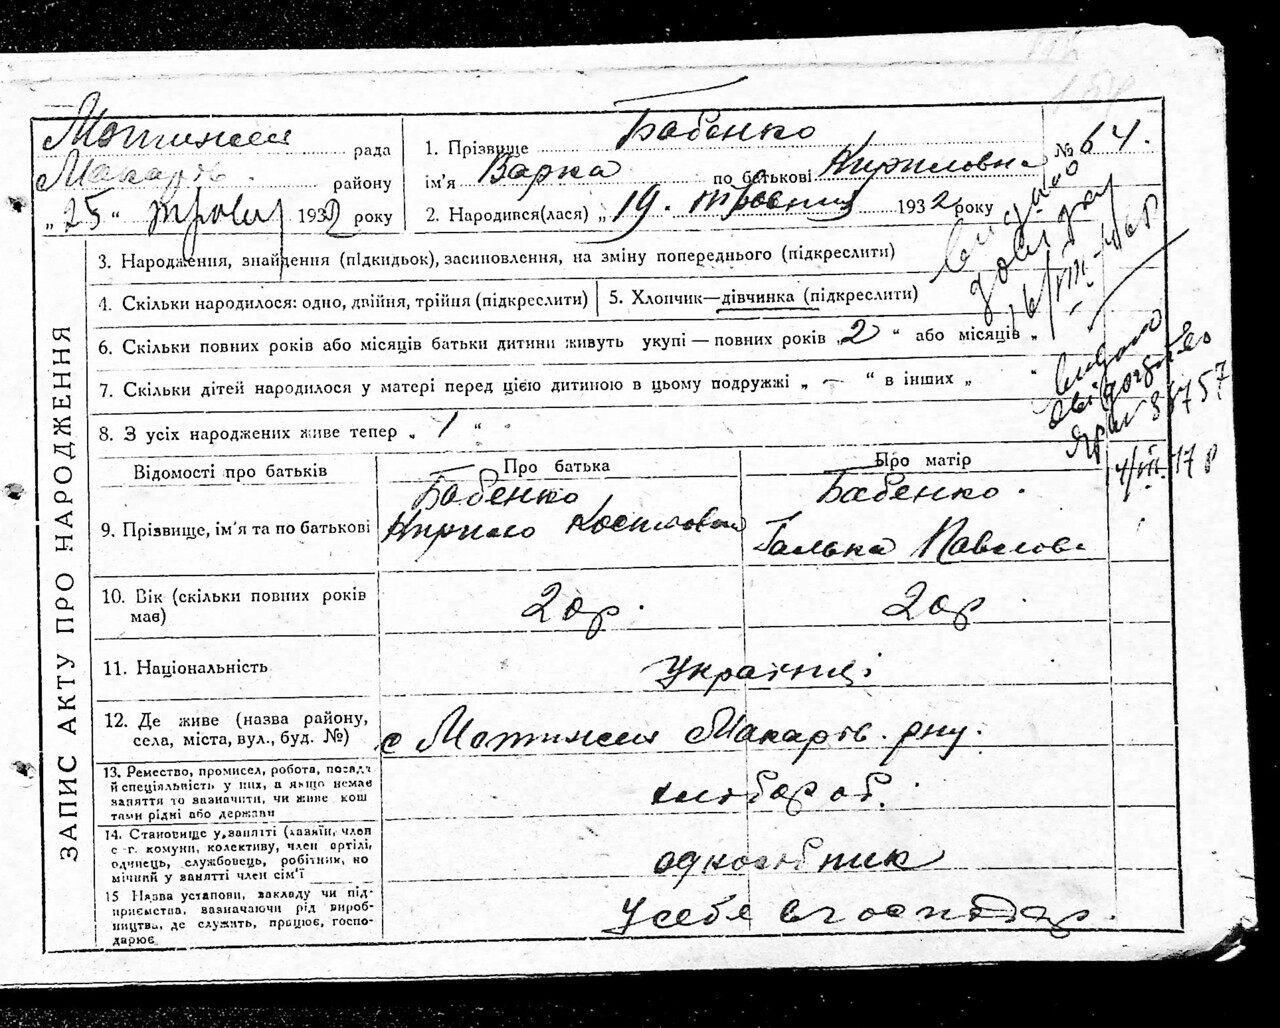 Мотижин рада
Макарів. району
„ 25 “ травня 1932 року
1. Прізвище Бабенко
ім'я Варка по батькові Кириловна
№ 64.
2. Народився(лася) „ 19. травня 1932 року
ЗАПИС АКТУ ПРО НАРОДЖЕННЯ
3. Народження, знайдення (підкидьок), засиновлення, на зміну попереднього (підкреслити)
4. Скільки народилося: одно, двійня, трійня (підкреслити)
5. Хлопчик—дівчинка (підкреслити)
6. Скільки повних років або місяців батьки дитини живуть укупі — повних років „ 2 “ або місяців „
7. Скільки дітей народилося у матері перед цією дитиною в цьому подружжі „ — “ в інших „ “
8. З усіх народжених живе тепер „ 1 “
Відомості про батьків
Про батька
Про матір
9. Прізвище, ім'я та по батькові
Бабенко
Кирило
Бабенко.
Галька Павлов.
10. Вік (скільки повних років має)
20 р.
20 р.
11. Національність
Українці
12. Де живе (назва району,
села, міста, вул., буд. №)
с Мотижин Макарів. р-ну.
13. Ремество, промисел, робота, посада
й спеціяльність у них, а якщо немає
заняття то зазначити, чи живе кош
тами рідні або держави
хлібороб.
14. Становище у занятті (хазяїн, член
с-г. комуни, колективу, член артілі,
одинець, службовець, робітник, но
мічний у занятті член сім'ї
одноосібник
15 Назва установи, закладу чи під-
приємства, зазначаючи рід вироб-
ництва, де служить, працює, госпо-
дарює
У себе в господар.
видано
видано
свідоцтво
38757